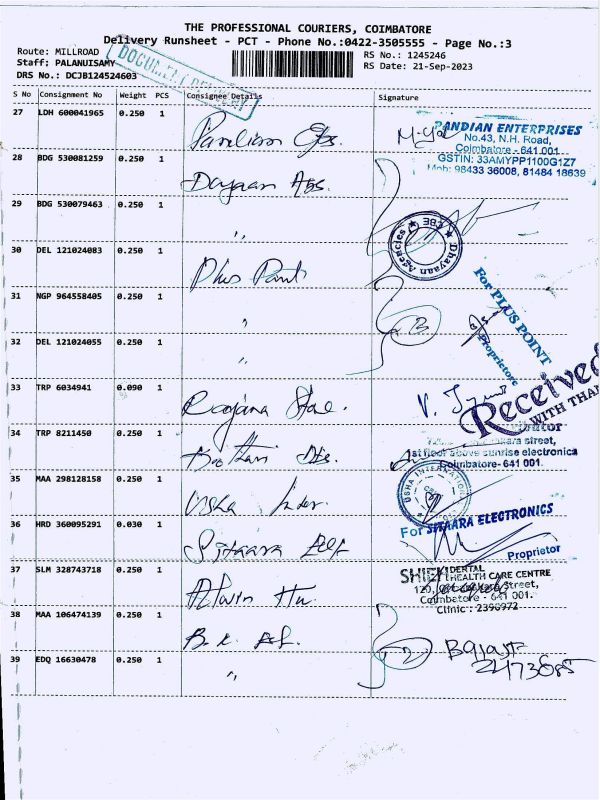 THE PROFESSIONAL COURIERS, COIMBATORE
Delivery Runsheet - PCT - Phone No.:0422-3505555 - Page No.:3
Route: MILLROAD
RS No.: 1245246
Staff: PALANUISAMY
RS Date: 21-Sep-2023
DRS No.: DCJB124524603
DOCUMENT DELIVERY
S No Consignment No Weight PCS Consignee Details Signature
27 LDH 600041965 0.250 1 Pandian
PANDIAN ENTERPRISES
No.43, N.H. Road,
Coimbatore - 641 001
GSTIN: 33AMYPP1100G1Z7
Mob: 98433 36008, 81484 18639
28 BDG 530081259 0.250 1 Dayaan Ags.
29 BDG 530079463 0.250 1 ,,
Dhayaan Agencies ★ CBE ★
30 DEL 121024083 0.250 1 Plus Point
For PLUS POINT
Proprietore
31 NGP 964558405 0.250 1 ,,
32 DEL 121024055 0.250 1 ,,
33 TRP 6034941 0.090 1
Received
WITH THAN
34 TRP 8211450 0.250 1
street,
1st floor above sunrise electronics
Coimbatore- 641 001.
35 MAA 298128158 0.250 1 Usha Inter
USHA INTERNATIONAL
36 HRD 360095291 0.030 1 Sitaara
For SITAARA ELECTRONICS
Proprietor
37 SLM 328743718 0.250 1
DENTAL
HEALTH CARE CENTRE
Street,
Coimbatore - 641 001.
Clinic : 2396972
38 MAA 106474139 0.250 1
39 EDQ 16630478 0.250 1 ,,